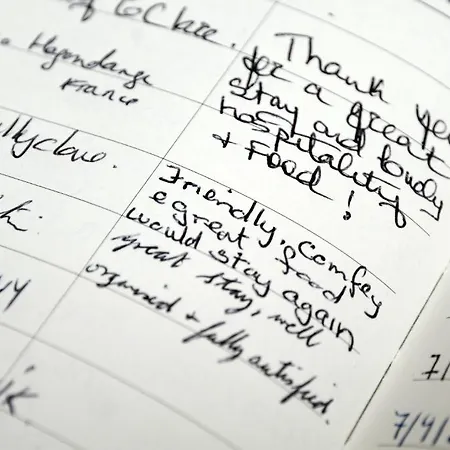 Co Clare.
Hayondange
France
Thank you
for a great
stay and lovely
hospitality
+ Food !
llyclare.
Friendly, Comfey
e great food
would stay again
great stay, well
organised + fully satisfied.
7/
7/4/